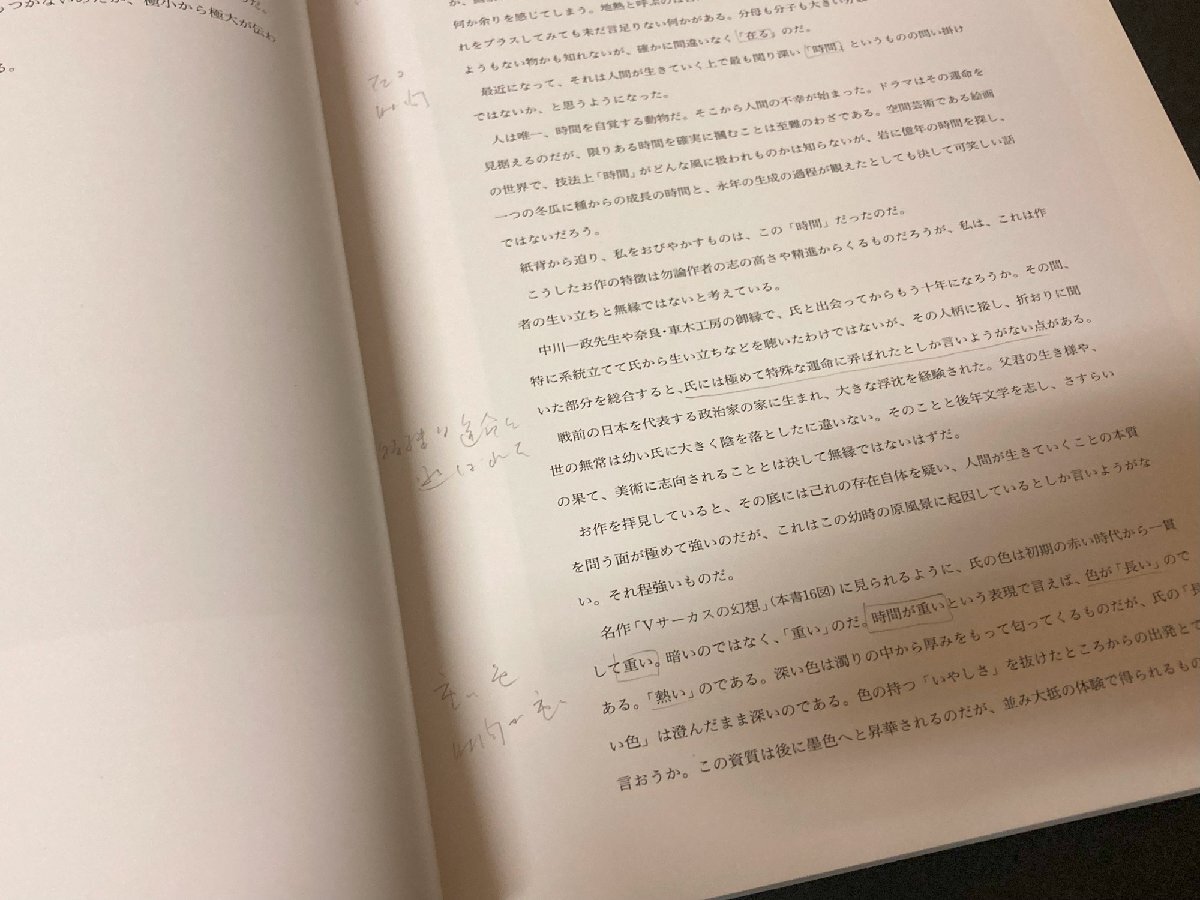 もつかないのだが、極小から極大が伝わ
る。
何か余りを感じてしまう。地熱と呼ぶのは
れをプラスしてみても未だ言足りない何かがある。分母も分子も大きい
ようもない物かも知れないが、確かに間違いなく『在る』のだ。
最近になって、それは人間が生きていく上で最も関り深い「時間」というものの問い掛け
ではないか、と思うようになった。
人は唯一、時間を自覚する動物だ。そこから人間の不幸が始まった。ドラマはその運命を
見据えるのだが、限りある時間を確実に摑むことは至難のわざである。空間芸術である絵画
の世界で、技法上「時間」がどんな風に扱われものかは知らないが、岩に億年の時間を探し、
一つの冬瓜に種からの成長の時間と、永年の生成の過程が観えたとしても決して可笑しい話
ではないだろう。
紙背から迫り、私をおびやかすものは、この「時間」だったのだ。
こうしたお作の特徴は勿論作者の志の高さや精進からくるものだろうが、私は、これは作
者の生い立ちと無縁ではないと考えている。
中川一政先生や奈良・車木工房の御縁で、氏と出会ってからもう十年になろうか。その間、
特に系統立てて氏から生い立ちなどを聴いたわけではないが、その人柄に接し、折おりに聞
いた部分を総合すると、氏には極めて特殊な運命に弄ばれたとしか言いようがない点がある。
戦前の日本を代表する政治家の家に生まれ、大きな浮沈を経験された。父君の生き様や、
世の無常は幼い氏に大きく陰を落としたに違いない。そのことと後年文学を志し、さすらい
の果て、美術に志向されることとは決して無縁ではないはずだ。
お作を拝見していると、その底には己れの存在自体を疑い、人間が生きていくことの本質
を問う面が極めて強いのだが、これはこの幼時の原風景に起因しているとしか言いようがな
い。それ程強いものだ。
名作「Vサーカスの幻想」(本書16図)に見られるように、氏の色は初期の赤い時代から一貫
して重い。暗いのではなく、「重い」のだ。時間が重いという表現で言えば、色が「長い」ので
ある。「熱い」のである。深い色は濁りの中から厚みをもって匂ってくるものだが、氏の「長
い色」は澄んだまま深いのである。色の持つ「いやしさ」を抜けたところからの出発とで
言おうか。この資質は後に墨色へと昇華されるのだが、並み大抵の体験で得られるもの
重い色
時間が重い